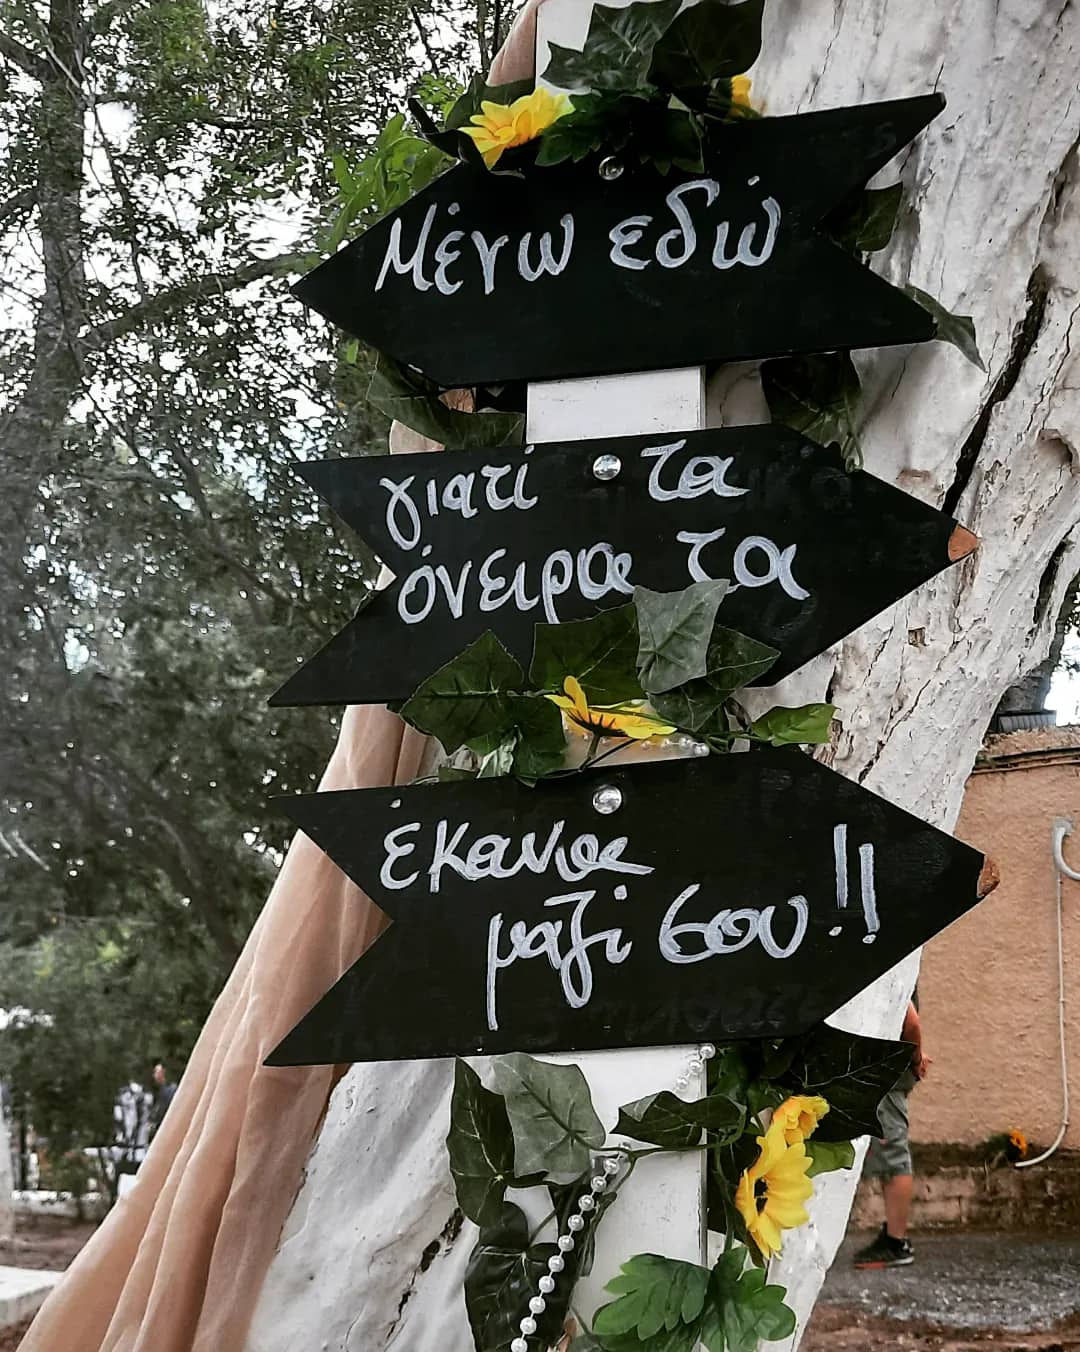 Μένω εδώ
γιατί τα
όνειρα τα
έκανες
μαζί σου!!